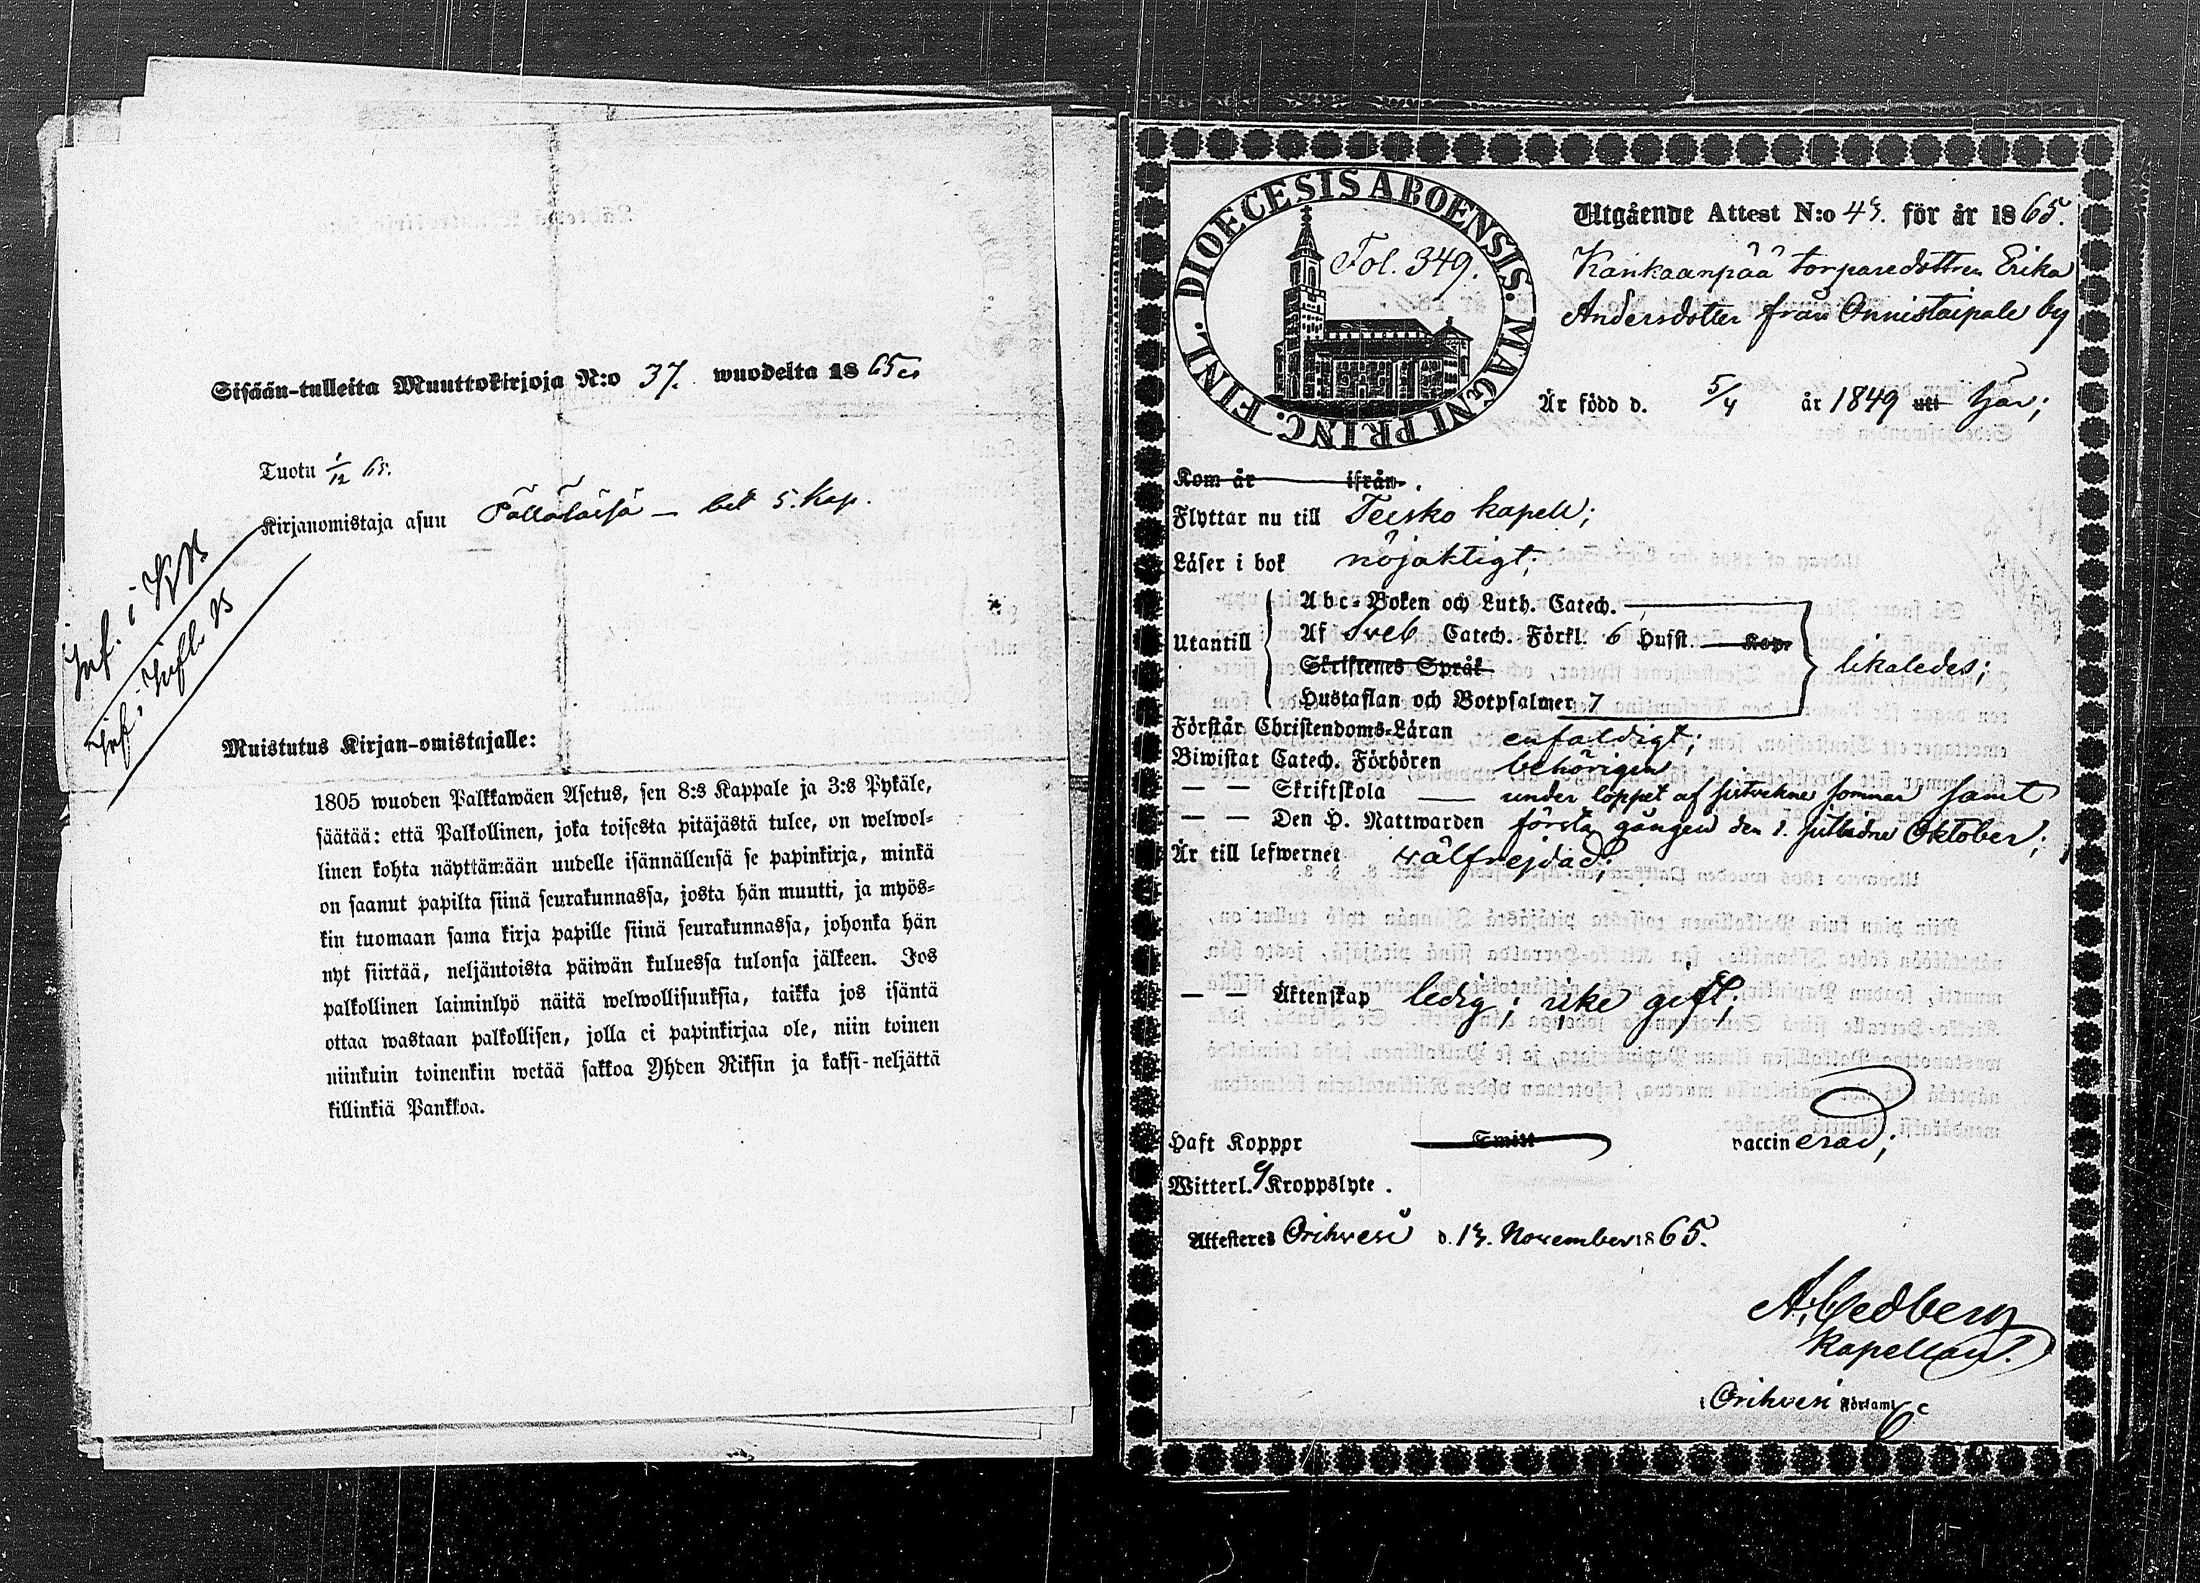 Sisään-tulleita Muuttokirjoja N:o 37. wuodelta 1865
Tuotu 1/12 65.
Kirjanomistaja asuu — bet 5. Kop.
Inf. i KB
Inf. i Infl. B
Muistutus Kirjan-omistajalle:
1805 wuoden Palkkawäen Asetus, sen 8:s Kappale ja 3:s Pykäle,
säätää: että Palkollinen, joka toisesta pitäjästä tulee, on welwol-
linen kohta näyttämään uudelle isännällensä se papinkirja, minkä
on saanut papilta siinä seurakunnassa, josta hän muutti, ja myös-
kin tuomaan sama kirja papille siinä seurakunnassa, johonka hän
nyt siirtää, neljäntoista päiwän kuluessa tulonsa jälkeen. Jos
palkollinen laiminlyö näitä welwollisuuksia, taikka jos isäntä
ottaa wastaan palkollisen, jolla ei papinkirjaa ole, niin toinen
niinkuin toinenkin wetää sakkoa Yhden Riksin ja kaksi-neljättä
killinkiä Pankkoa.
DIOECESIS ABOENSIS. MAGNI PRINC. FINL.
Fol. 349.
Utgående Attest N:o för år 1865.
Kankaanpää torparedottren Erika
Andersdotter från Onnistaipale by
Är född d. 5/4 år 1849 uti här;
Kom år ifrån
Flyttar nu till Teisko kapell;
Läser i bok nöjaktigt;
Utantill
Abc-Boken och Luth. Catech.
Af Sveb Catech. Förkl. 6 Hufst. Kap.
Skriftenes Språk
Hustaflan och Botpsalmer 7
likaledes;
Förstår Christendoms-Läran enfaldigt;
Biwistat Catech. Förhören behörigen
— — Skriftskola — under loppet af sistvekne sommar samt
— — Den H. Nattwarden första gången den 1. sistlidne Oktober;
Är till lefwernet välfrejdad;
— — Äktenskap ledig; icke gift;
Haft Koppor Smitt vaccinerad;
Witterl. Kroppslyte.
Attesteres Orihvesi d. 13. November 1865.
A. Cedberg
Kapellan.
i Orihvesi Församl